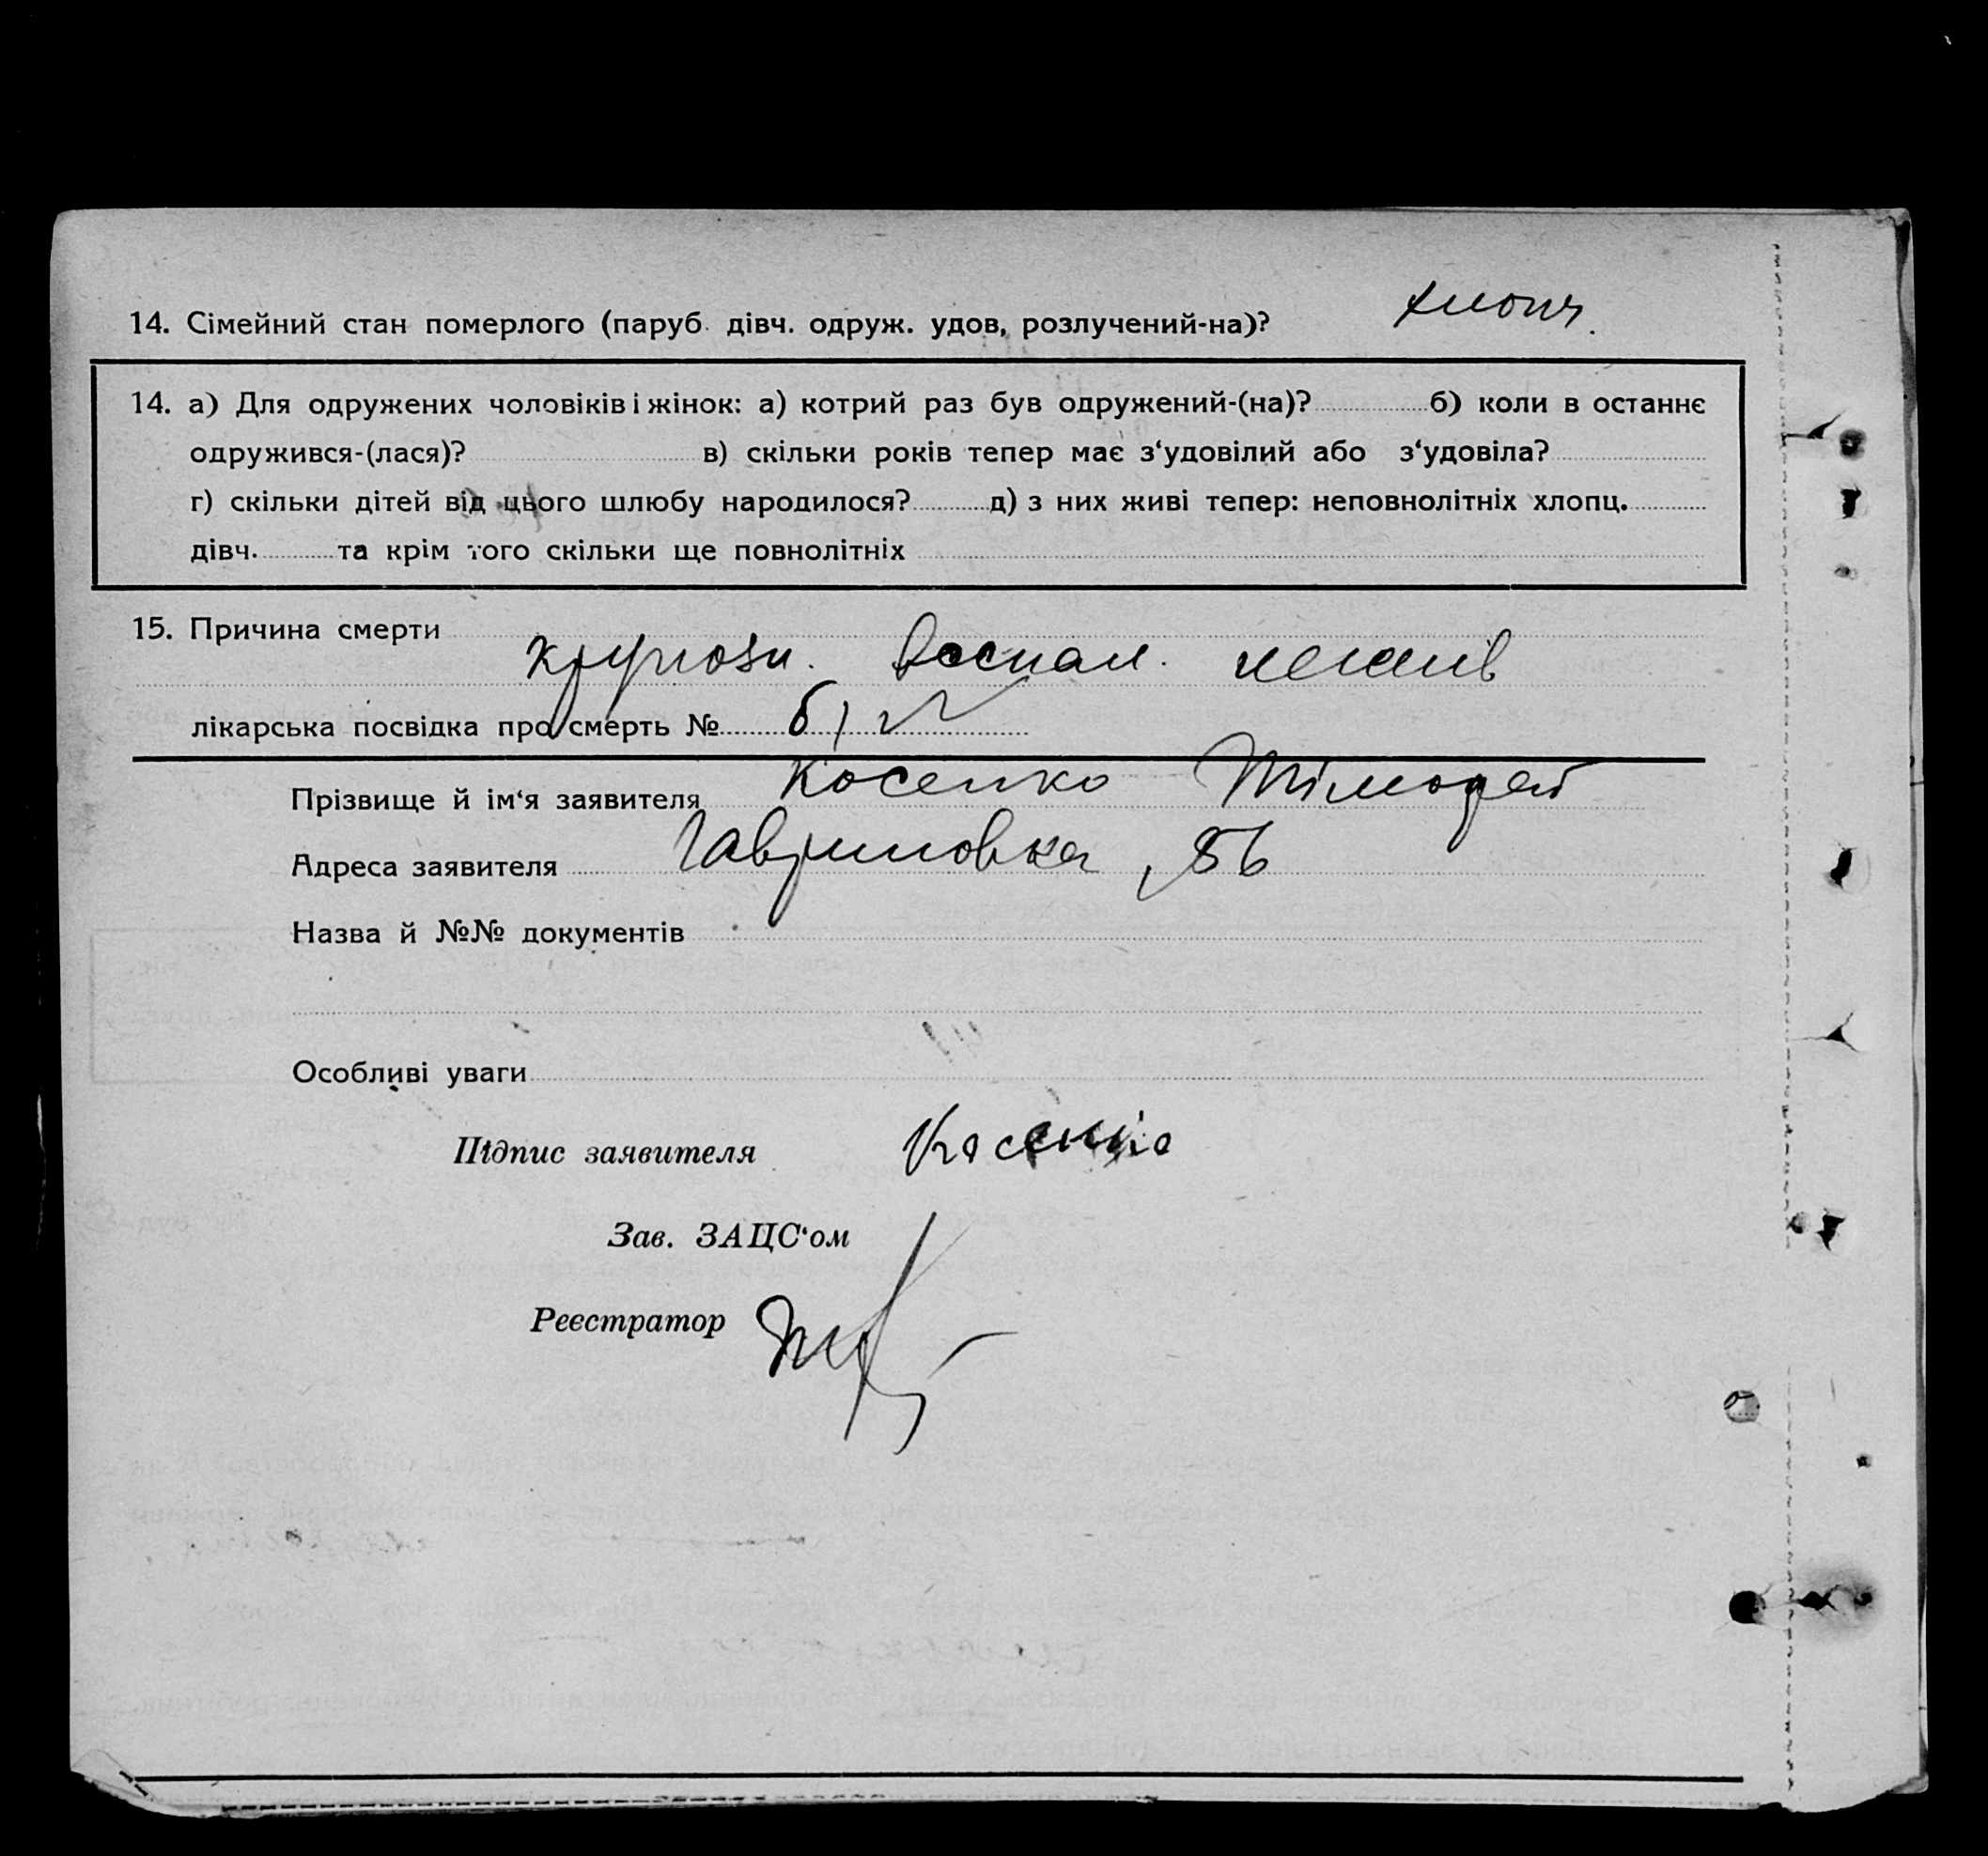 14. Сімейний стан померлого (паруб. дівч. одруж. удов, розлучений-на)? хлопч.
14. а) Для одружених чоловіків і жінок: а) котрий раз був одружений-(на)? б) коли в останнє
одружився-(лася)? в) скільки років тепер має з‘удовілий або з‘удовіла?
г) скільки дітей від цього шлюбу народилося? д) з них живі тепер: неповнолітніх хлопц.
дівч. та крім того скільки ще повнолітніх
15. Причина смерти
крупозн. воспал. легенів
лікарська посвідка про смерть № б/
Прізвище й ім‘я заявителя Косенко Тімофей
Адреса заявителя Гавриловка, 56
Назва й №№ документів
Особливі уваги
Підпис заявителя Косенко
Зав. ЗАЦС‘ом
Реєстратор